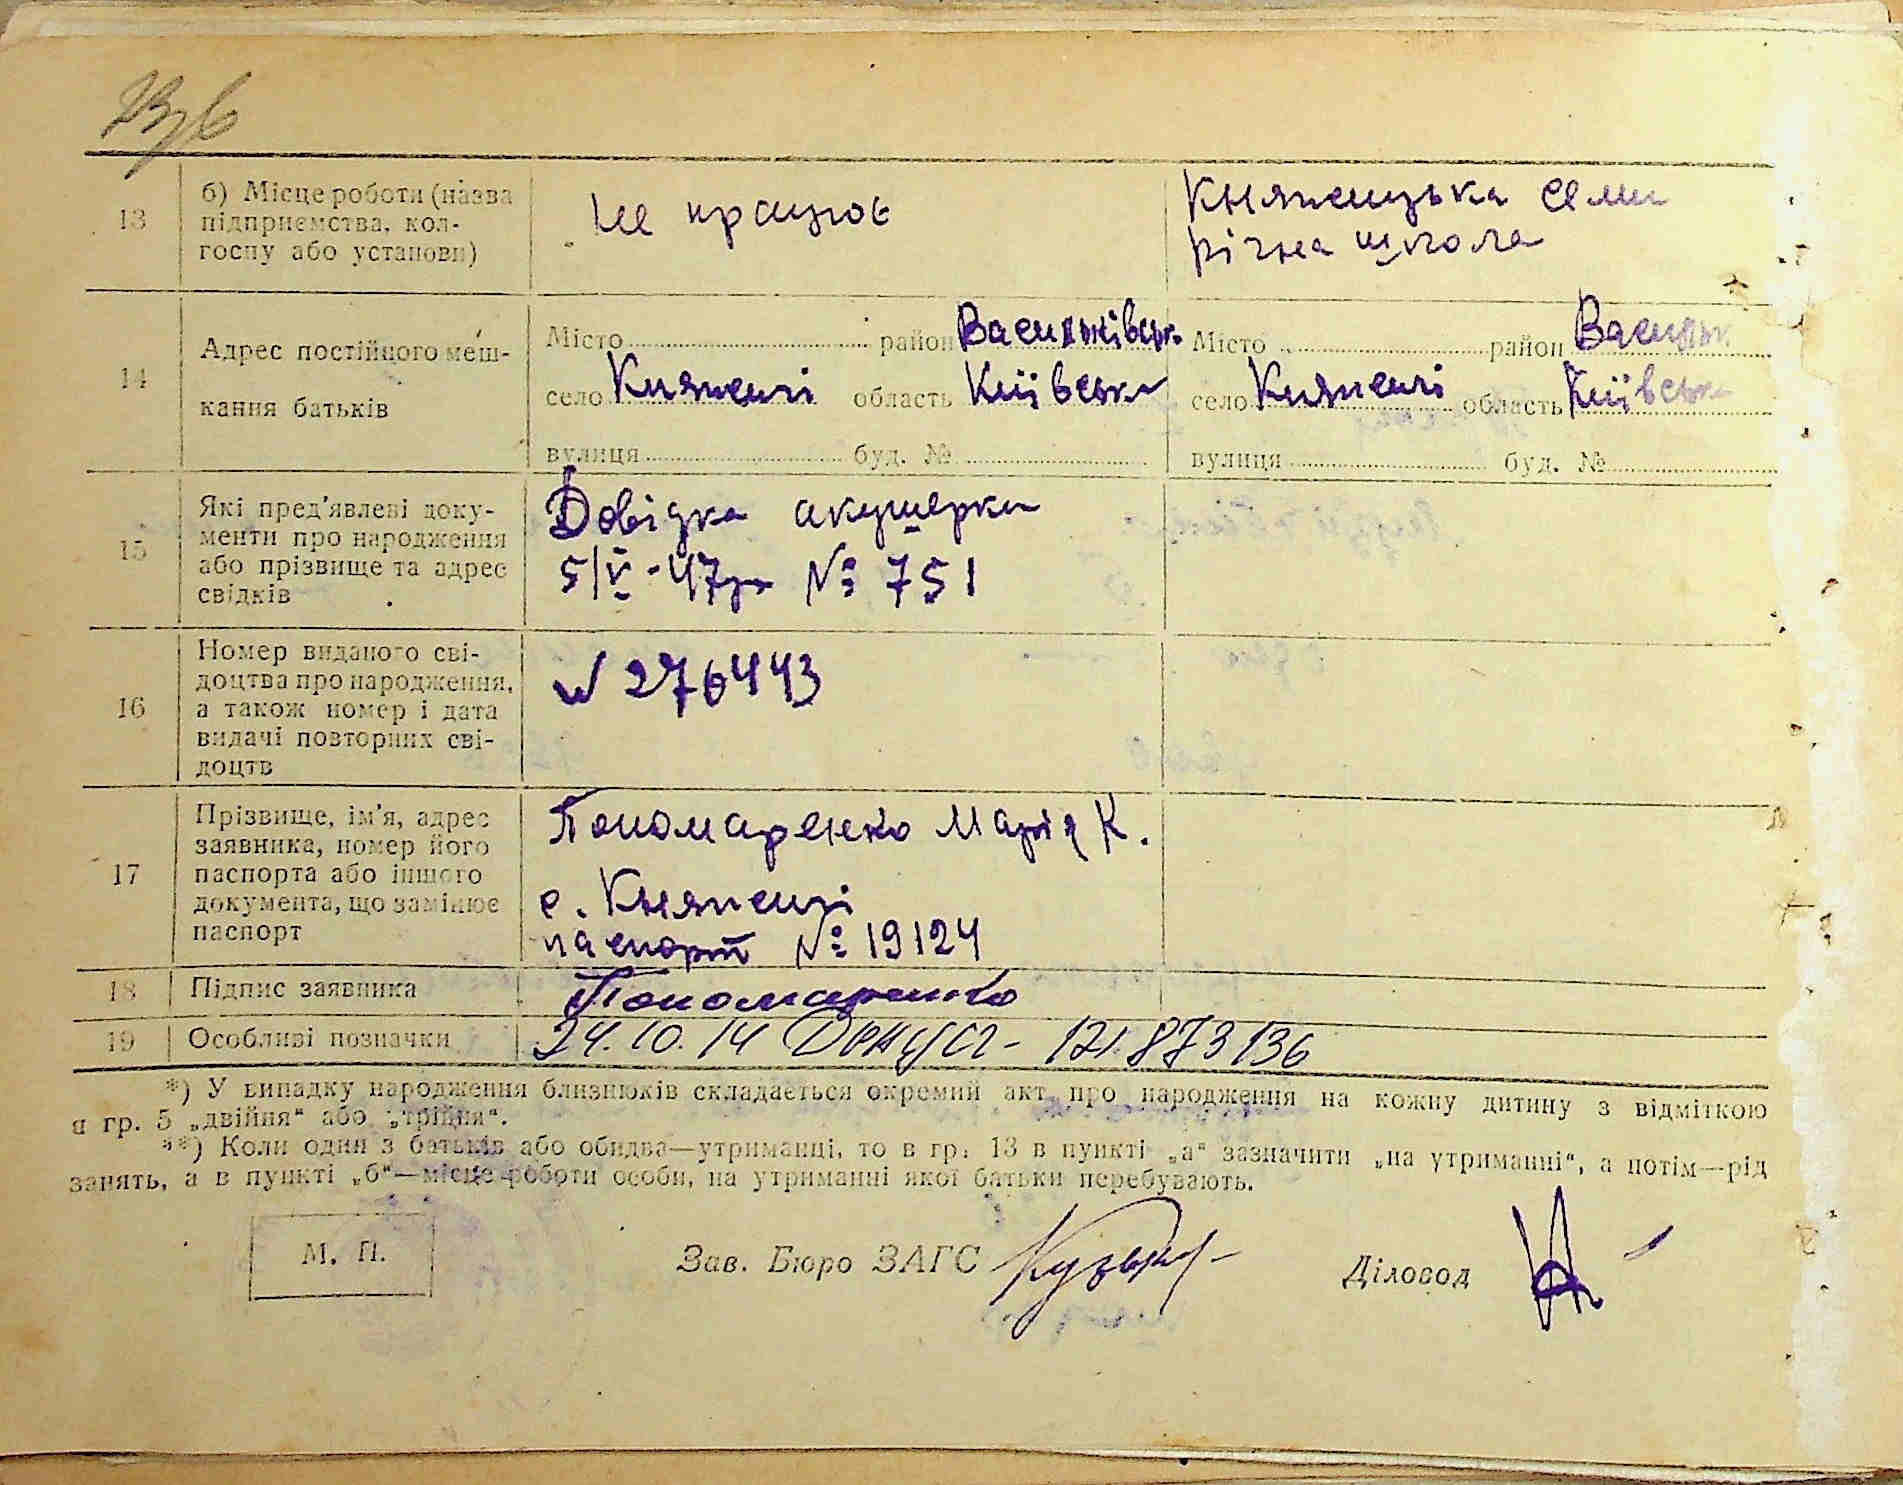 13
б) Місце роботи (назва
підприємства, кол-
госпу або установи)
не працює
Княженцька семи
річна школа
14
Адрес постійного меш-
кання батьків
Місто район Васильківськ
село Княжичі область Київська
вулиця буд. №
Місто район Васильк
село Княжичі область Київська
вулиця буд. №
15
Які пред'явлені доку-
менти про народження
або прізвище та адрес
свідків
Довідка акушерки
5/V-47р № 751
16
Номер виданого сві-
доцтва про народження,
а також номер і дата
видачі повторних сві-
доцтв
№ 276443
17
Прізвище, ім'я, адрес
заявника, номер його
паспорта або іншого
документа, що замінює
паспорт
Пономаренко Марія К.
с. Княжичі
паспорт № 19124
18
Підпис заявника
Пономаренко
19
Особливі позначки
24.10.14 ДРАЦСГ - 121.873136
*) У випадку народження близнюків складається окремий акт про народження на кожну дитину з відміткою
в гр. 5 „двійня“ або „трійня“.
**) Коли один з батьків або обидва—утриманці, то в гр. 13 в пункті „а“ зазначити „на утриманні“, а потім—рід
занять, а в пункті „б“—місце роботи особи, на утриманні якої батьки перебувають.
М. П.
Зав. Бюро ЗАГС
Діловод